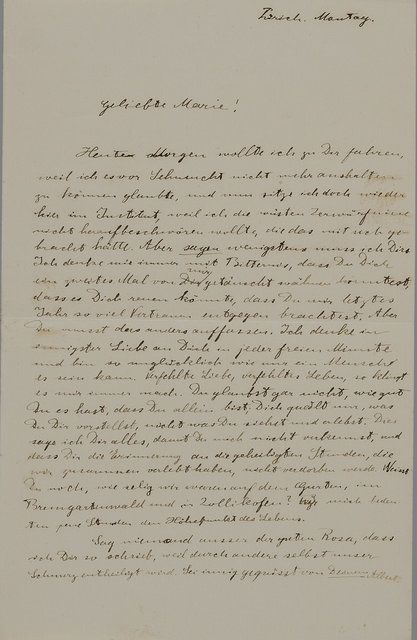 Zürich. Montag.
Geliebte Marie!
Heute Morgen wollte ich zu Dir fahren,
weil ich es vor Sehnsucht nicht mehr aushalten
zu können glaubte, und nun sitze ich doch wieder
hier im Institut, weil ich die wüsten Zerwürfnisse
nicht heraufbeschwören wollte, die das mit sich ge
bracht hätte. Aber sagen wenigstens muss ich Dirs
Ich denke mir immer mit Bitternis, dass Du Dich
ein zweites Mal von mir getäuscht wähnen konntest,
dass es Dich reuen könnte, dass Du mir letztes
Jahr so viel Vertrauen entgegen brachtest. Aber
Du musst das anders auffassen. Ich denke in
innigster Liebe an Dich in jeder freien Minute
und bin so unglücklich wie nur ein Mensch
es sein kann. Verfehlte Liebe, verfehltes Leben, so klingt
es mir immer nach. Du glaubst gar nicht, wie gut
Du es hast, dass Du allein bist; Dich quält nur, was
Du Dir vorstellst, nicht was Du siehst und erlebst. Dies
sage ich Dir alles, damit Du mich nicht verkennst, und
dass Dir die Erinnerung an die geheiligten Stunden, die
wir zusammen verlebt haben, nicht verdorben werde. Weisst
Du noch, wie selig wir waren auf dem Gurten, im
Bremgartenwald und in Zollikofen? Für mich bedeu
ten jene Stunden den Höhepunkt des Lebens.
Sag niemand ausser der guten Rosa, dass
ich Dir so schrieb, weil durch andere selbst unser
Schmerz entheiligt wird. Sei innig gegrüsst von Deinem Albert